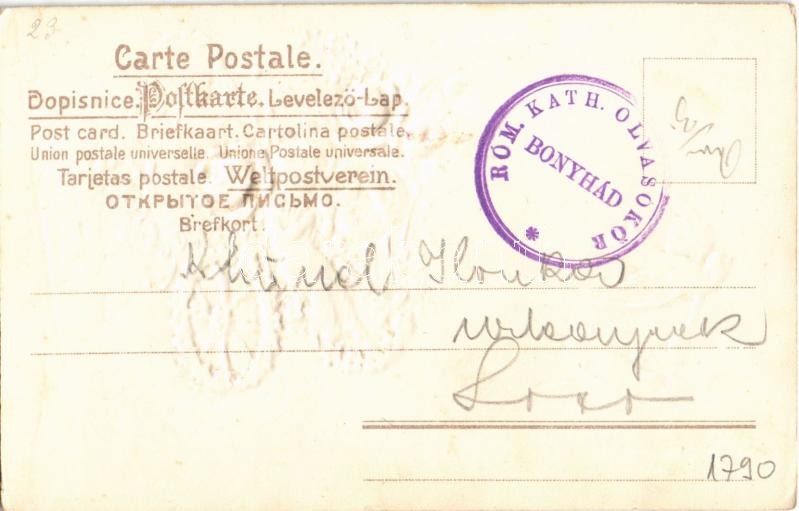 23
Carte Postale.
Dopisnice. Postkarte. Levelező-Lap.
Post card. Briefkaart. Cartolina postale.
Union postale universelle. Unione Postale universale.
Tarjetas postale. Weltpostverein.
ОТКРЫТОЕ ПИСЬМО.
Brefkort.
RÓM. KATH. OLVASÓKÖR
BONYHÁD
*
Ilonka
1790